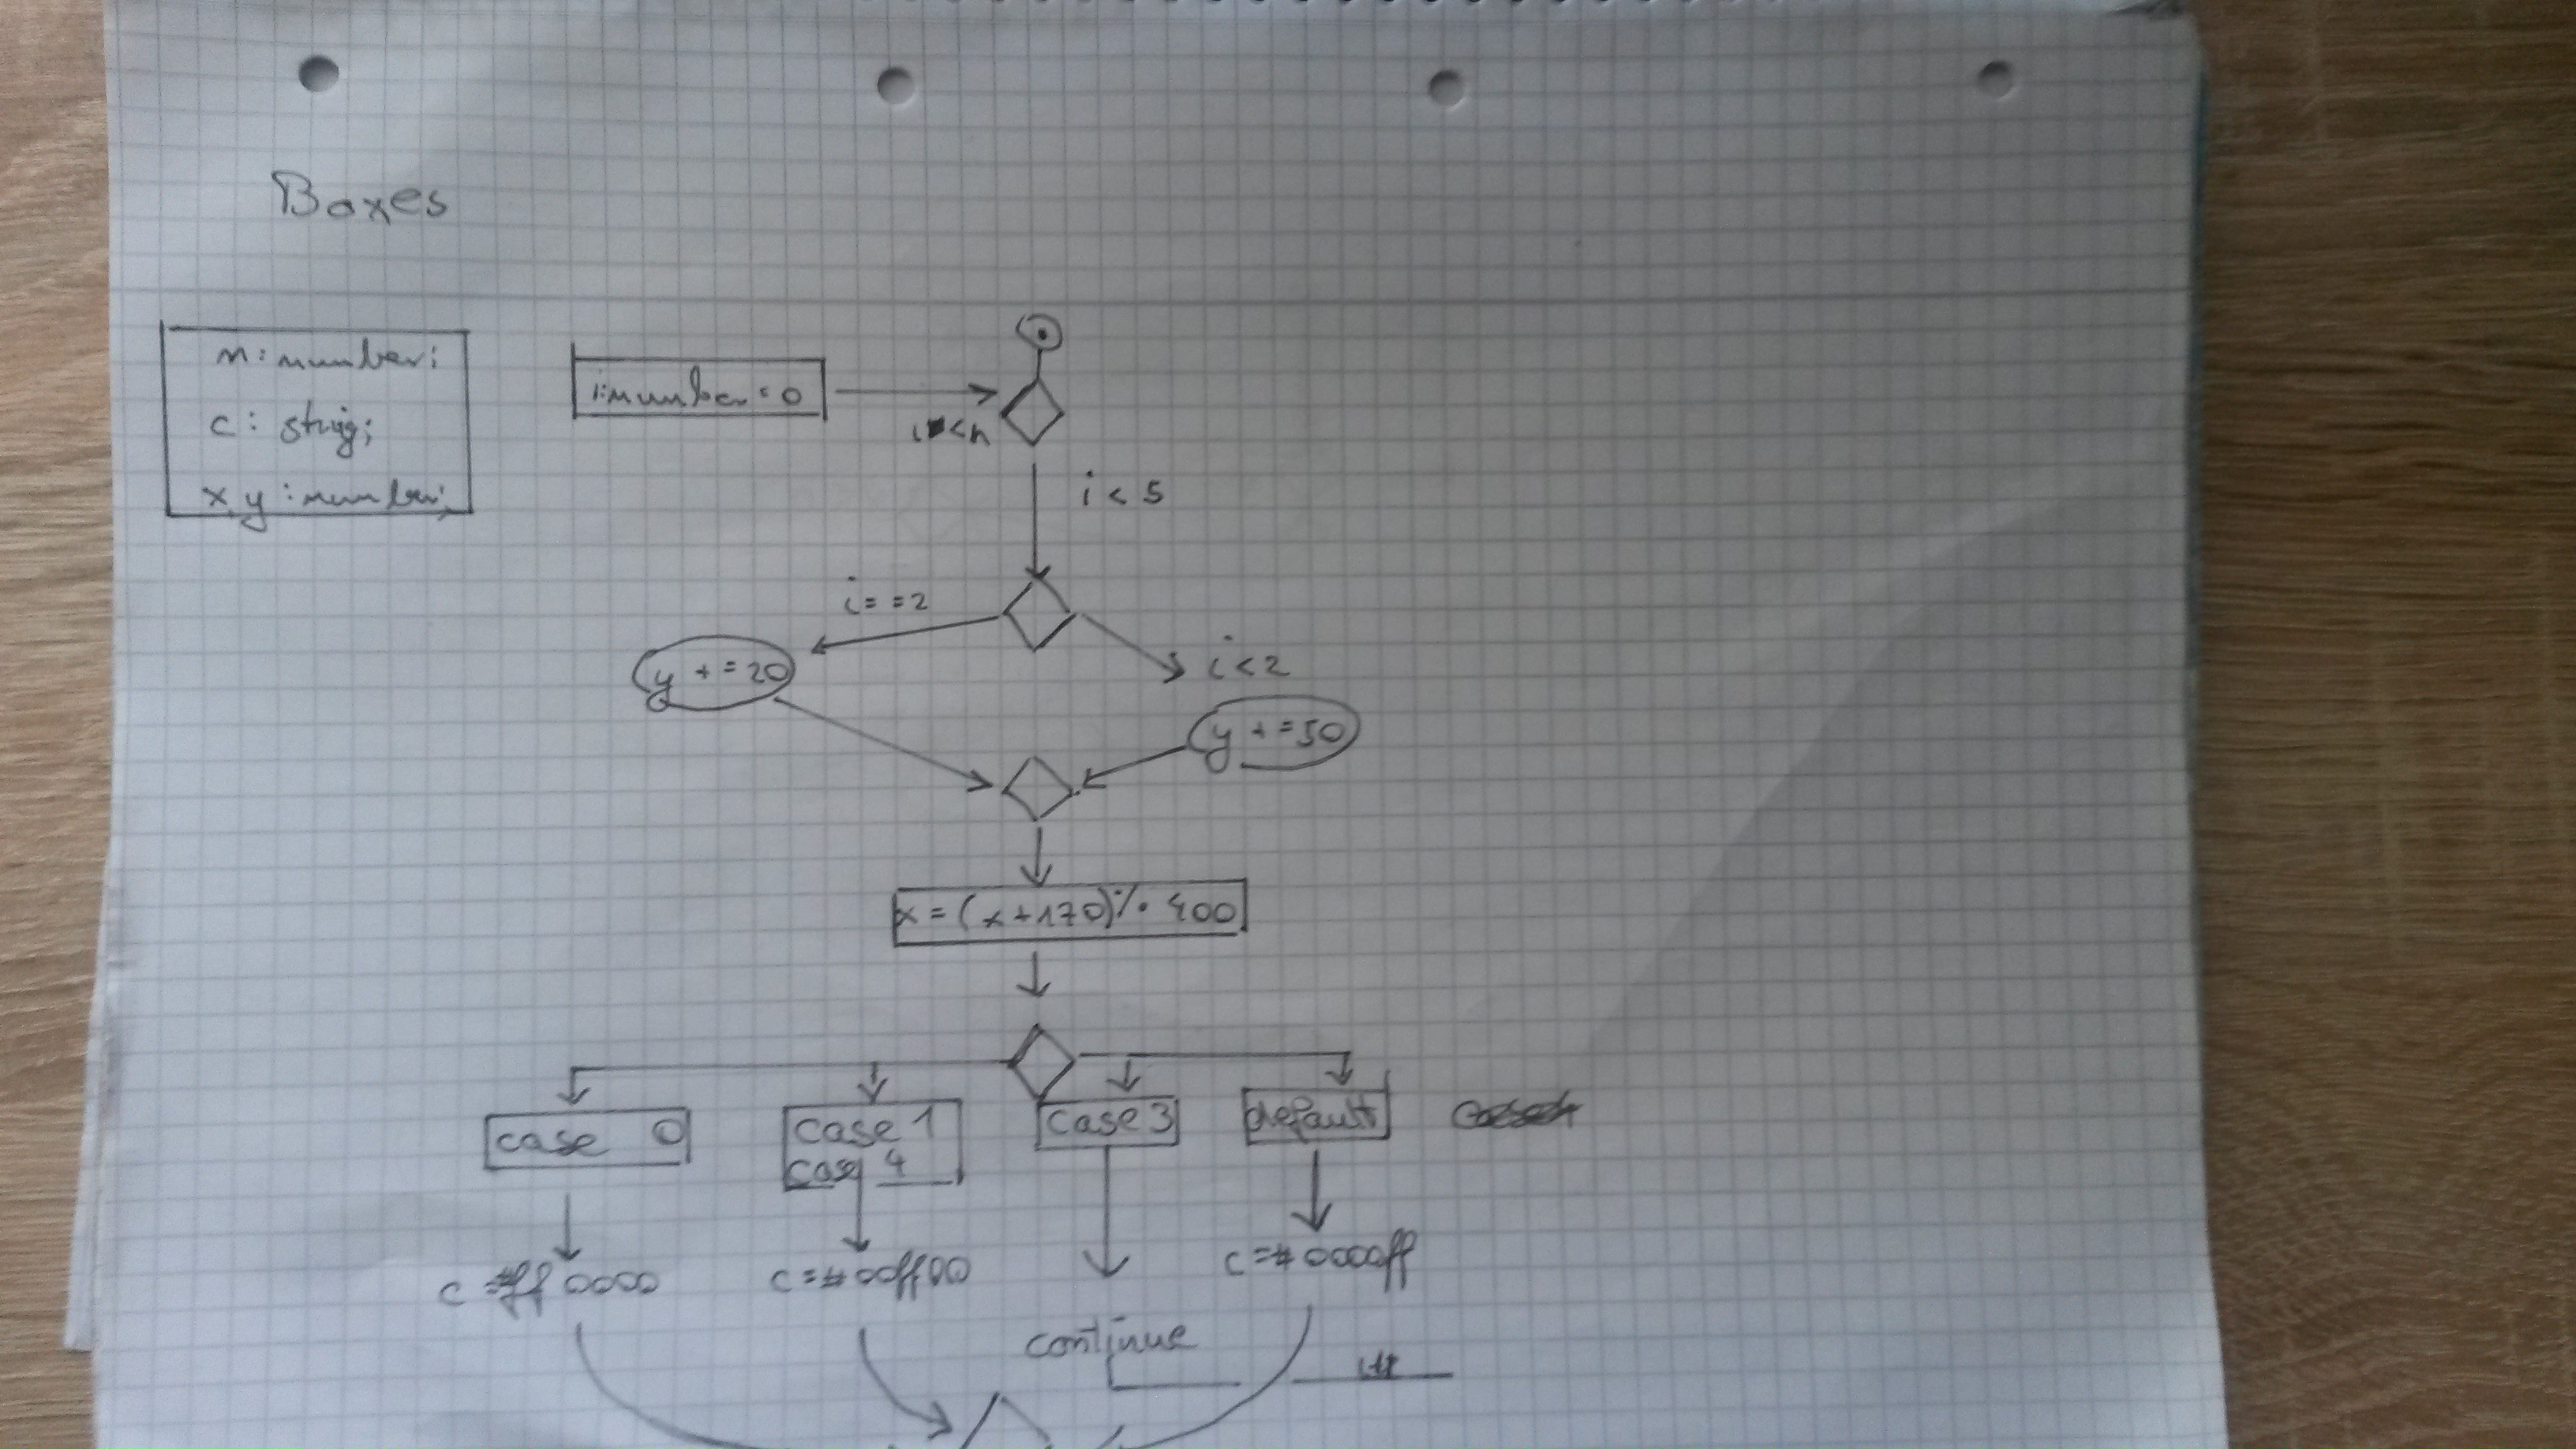 Boxes
n: number;
c: string;
x,y: number;
i:number = 0
i < n
i < 5
i = = 2
i < 2
y + = 20
y + = 50
x = (x + 170) % 400
case 0
case 1
case 4
case 3
default
c = #ff0000
c = #00ff00
continue
c = #0000ff